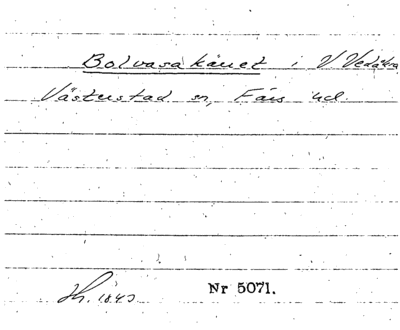 Bolvasakärret i V Vedåkra
Västerstad sn, Färs hd.
Hs. 1843
Nr 5071.